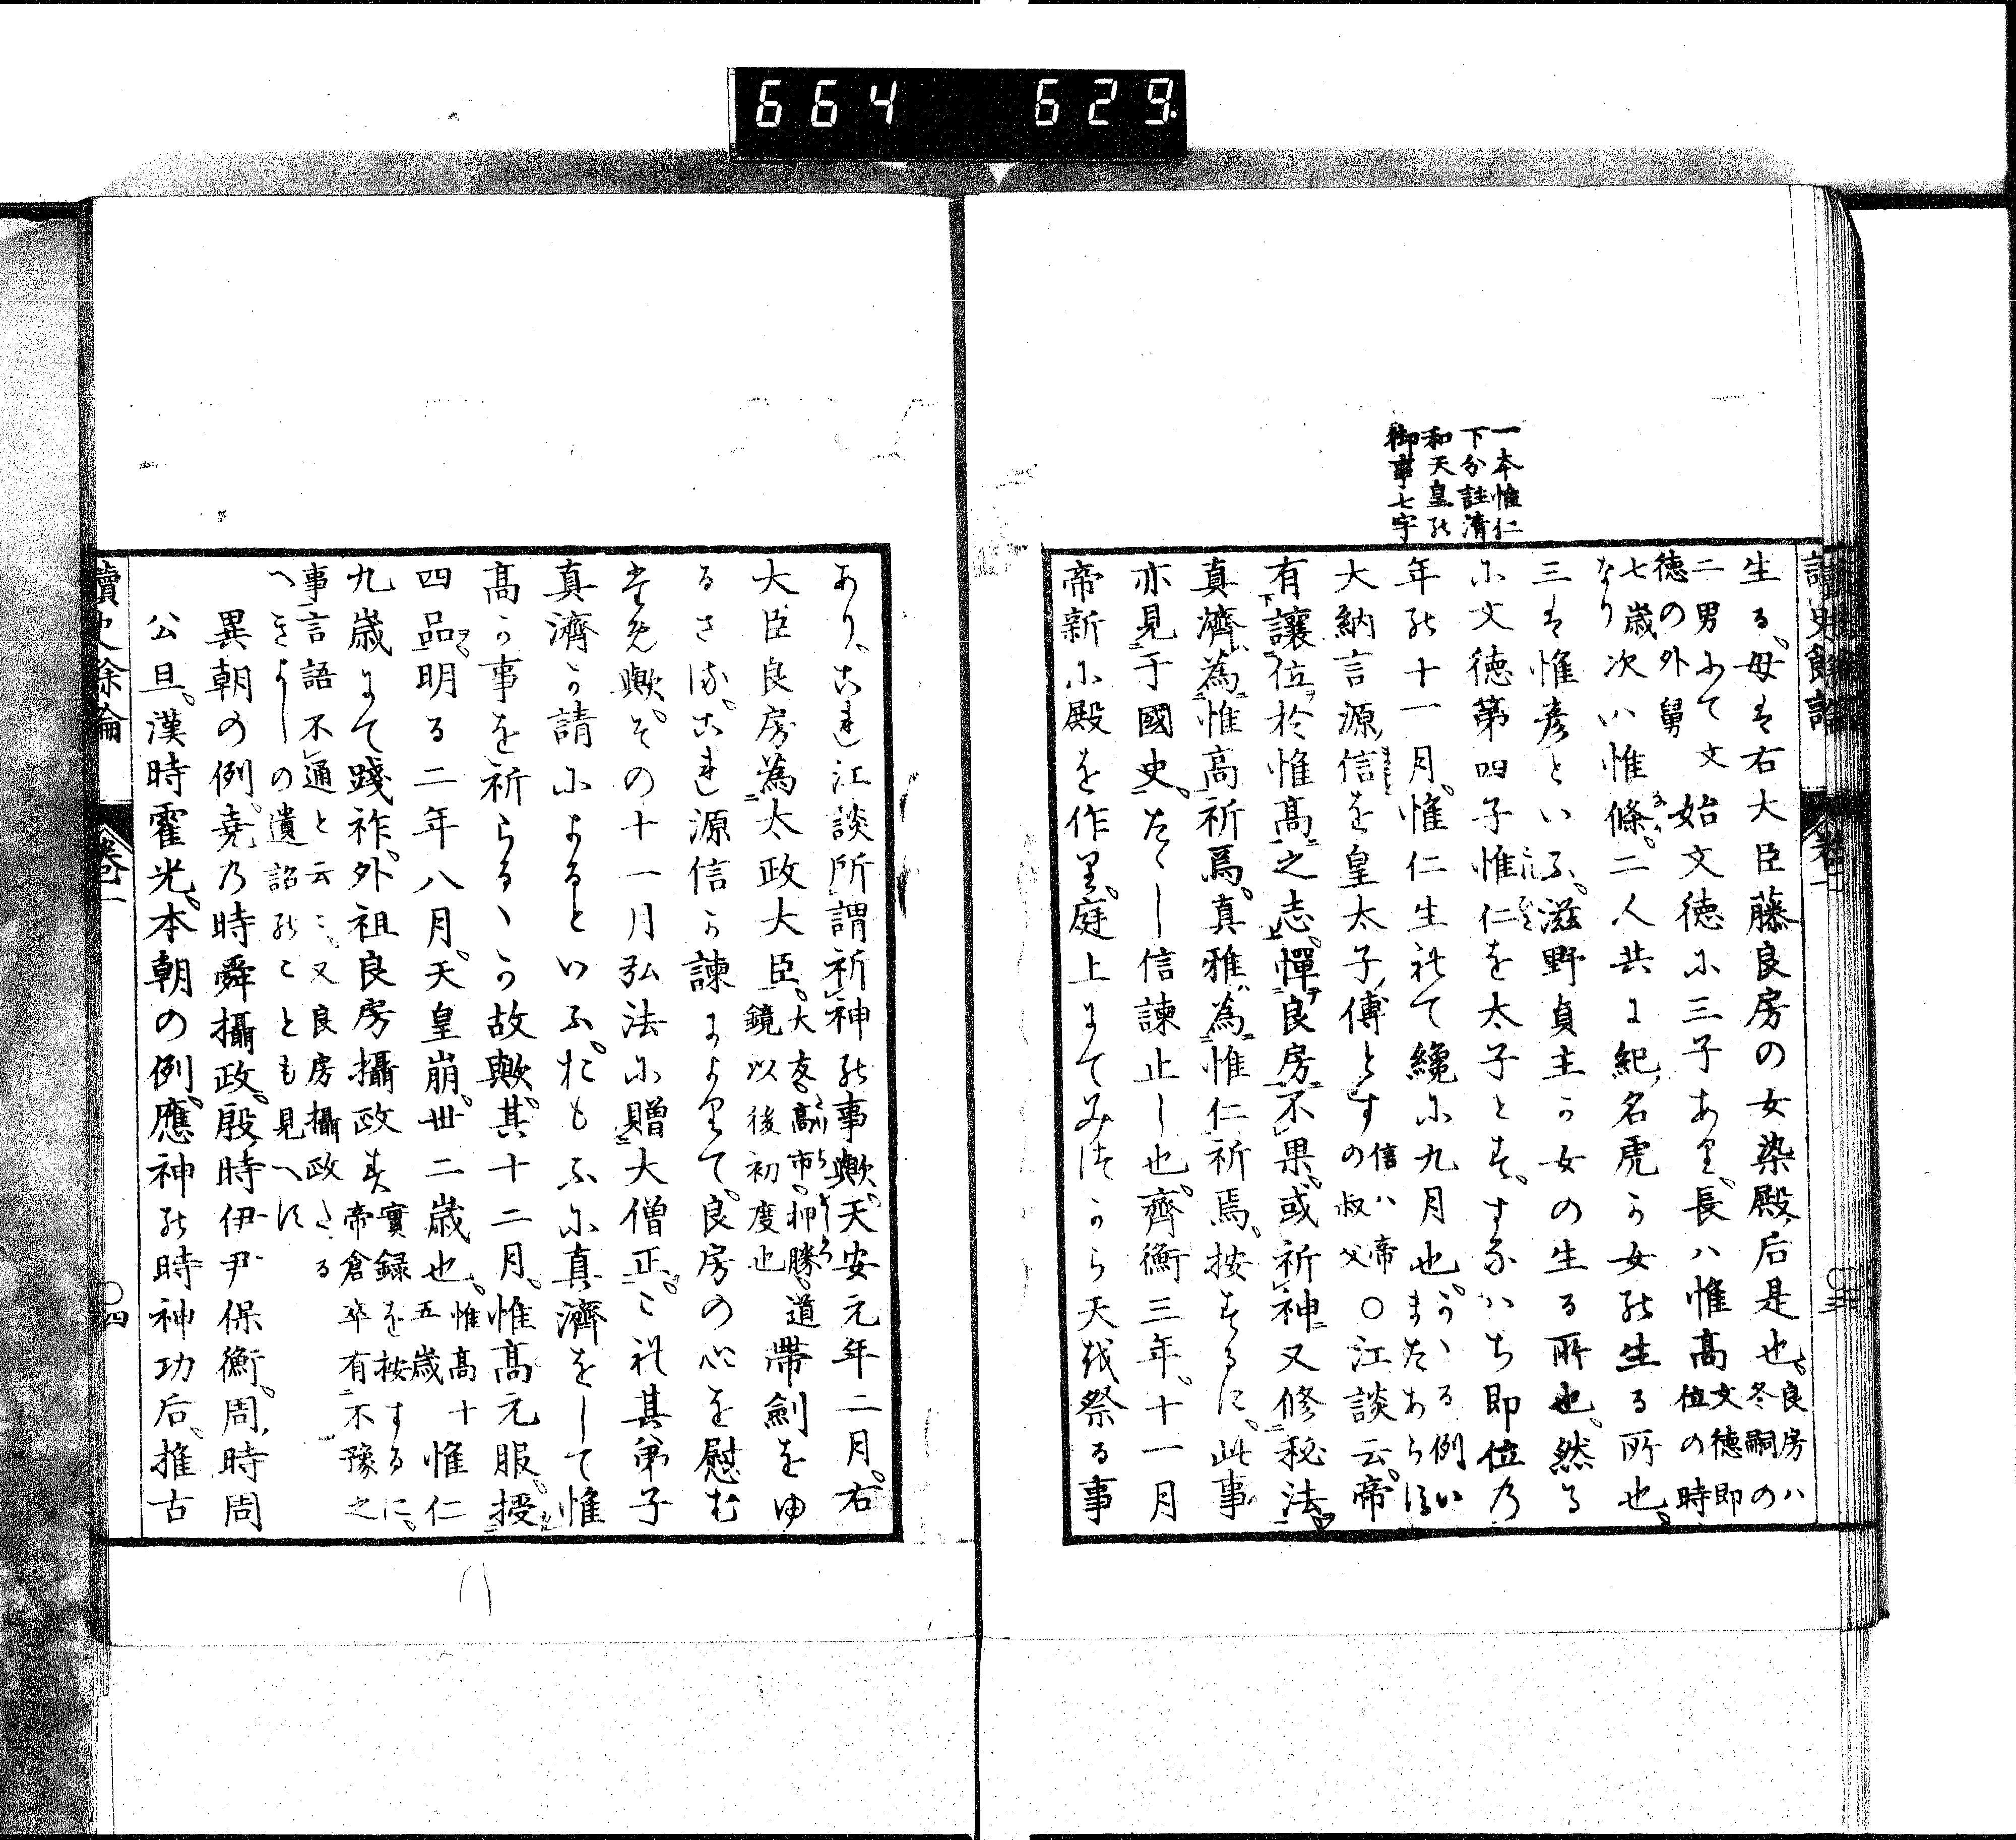 664 629.
一本惟仁
下分註清
和天皇の
御事七字
生る。母は右大臣藤良房の女染殿后是也。良房ハ冬嗣の
二男にて文徳の外舅 始文徳に三子あり。長ハ惟高文徳即位の時
七歳なり 次ハ惟條。二人共に紀名虎か女の生る所也。
三は惟彦といふ。滋野貞主か女の生る所也。然る
に文徳第四子惟仁を太子とす。すなハち即位の
年の十一月。惟仁生れて纔に九月也。かゝる例いまたあらす
大納言源信を皇太子傅とす信ハ帝の叔父○江談云。帝
有讓位於惟高之志。憚良房不果。或祈神又修秘法。
真濟為惟高祈焉。真雅為惟仁祈焉。按するに。此事
亦見于國史。たゝし信諫止し也。齊衡三年。十一月
帝新に殿を作り。庭上にてみつから天を祭る事
讀史餘論 卷一
あり。これ江談所謂祈神の事歟。天安元年二月。右
大臣良房為太政大臣。大友。高市。押勝。道鏡以後初度也 帶劍をゆ
るさる。これ源信か諫によりて。良房の心を慰む
るため歟。その十一月弘法に贈大僧正。これ其弟子
真濟か請によるといふ。おもふに真濟をして惟
高か事を祈らるゝか故歟。其十二月。惟高元服。授
四品。明る二年八月。天皇崩。卅二歳也。惟高十五歳 惟仁
九歳にて踐祚。外祖良房攝政す實録を按するに。帝倉卒有不豫之
事。言語不通と云々。又良房攝政たるへきよしの遺詔のことも見へす
異朝の例。堯の時舜攝政。殷時伊尹保衡。周時周
公旦。漢時霍光。本朝の例。應神の時神功后。推古
讀史餘論 卷一 ○四